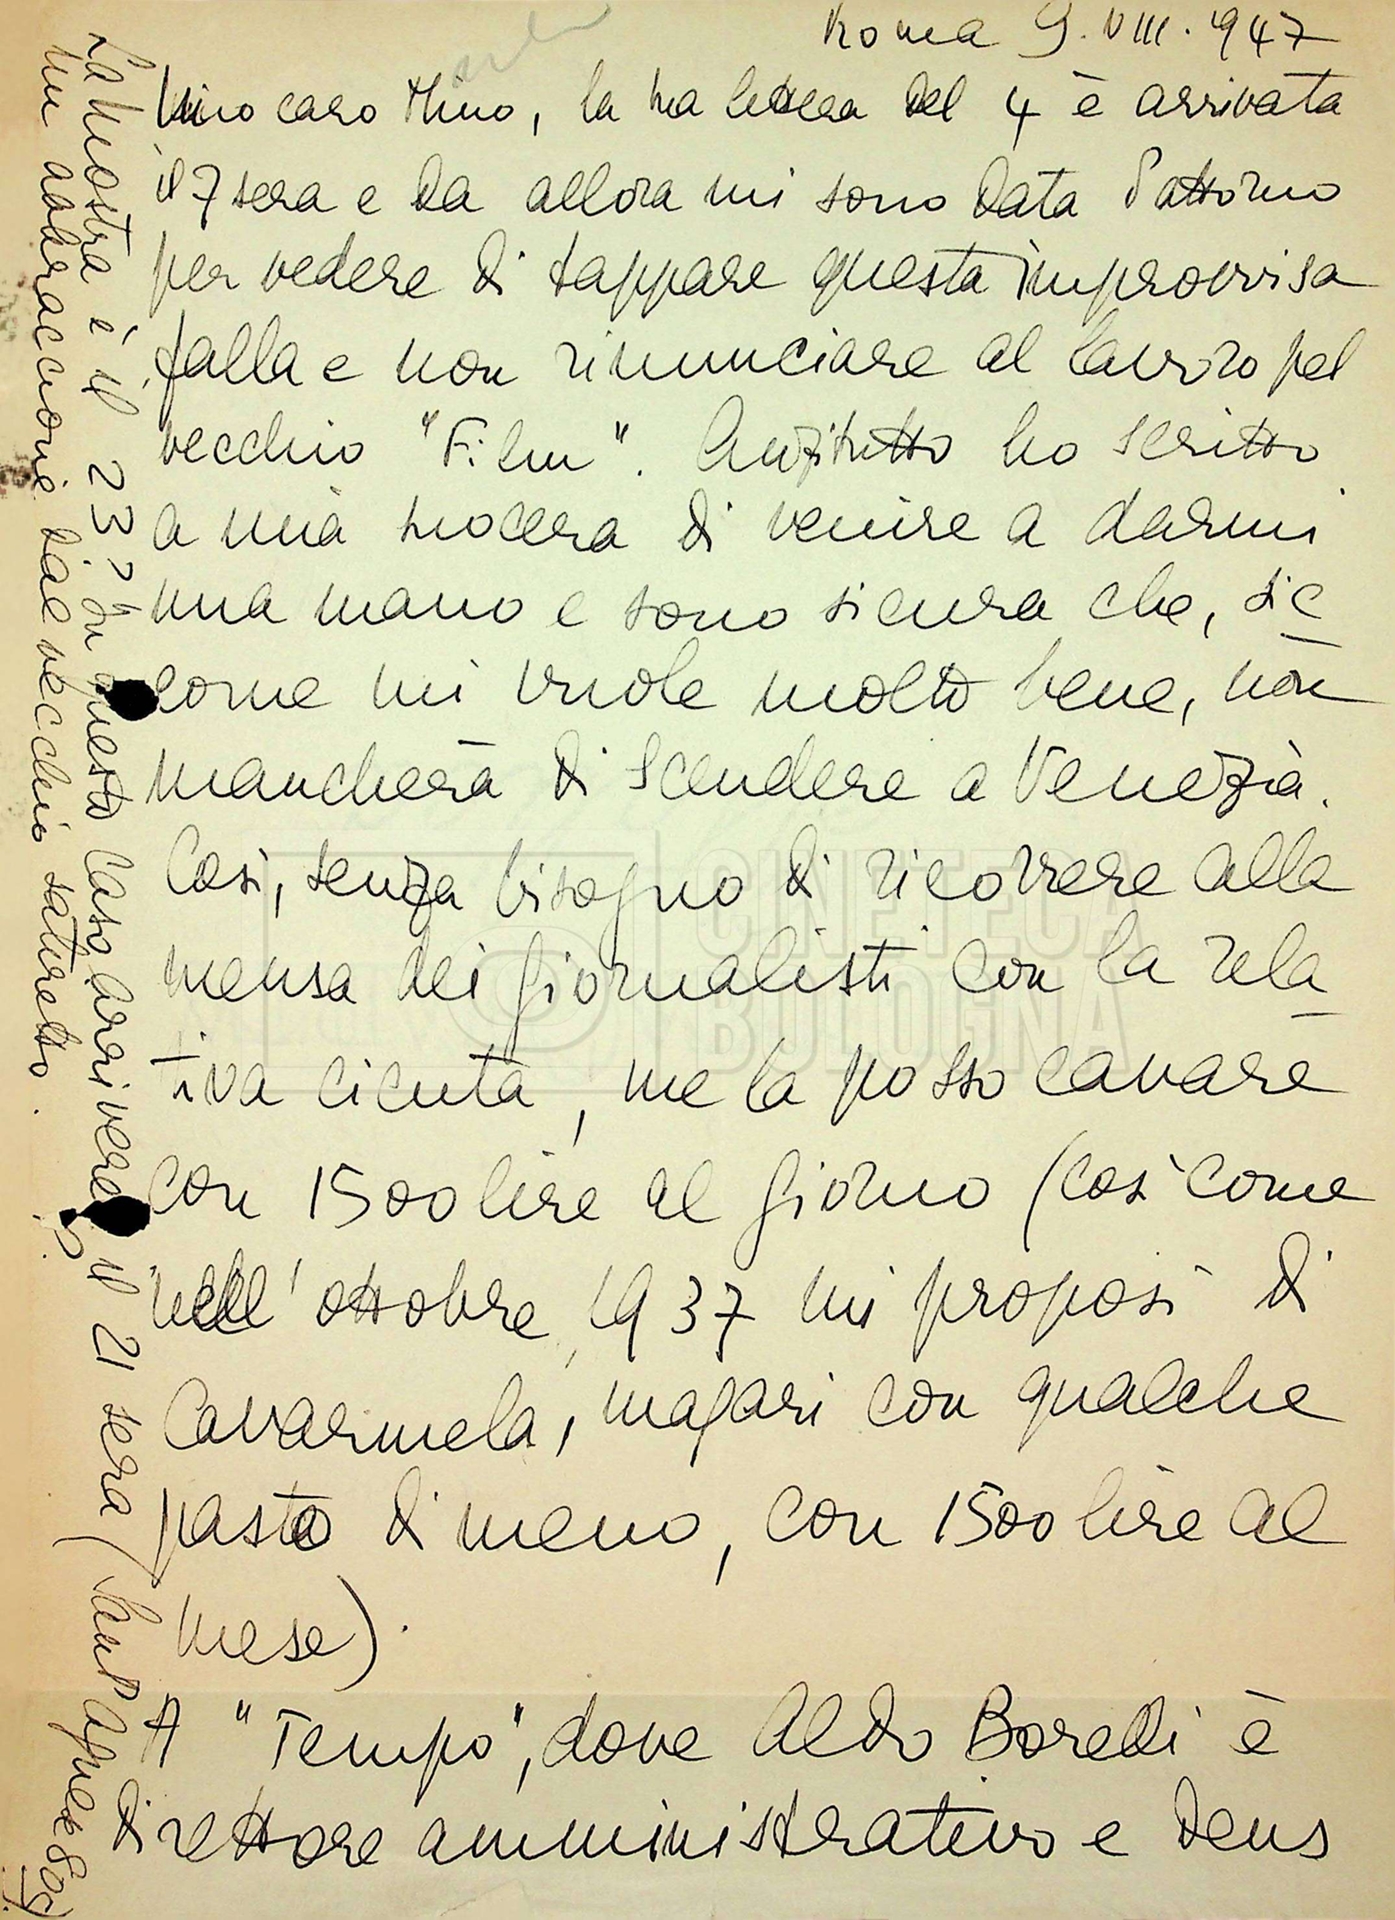 Roma 9.VIII.947
Mino caro Mino, la tua lettera del 4 è arrivata
il 7 sera e da allora mi sono data d'attorno
per vedere di tappare questa improvvisa
falla e non rinunciare al lavoro pel
vecchio "Film". Anzitutto ho scritto
a mia suocera di venire a darmi
una mano e sono sicura che, sic
come mi vuole molto bene, non
mancherà di scendere a Venezia.
Così, senza bisogno di ricorrere alla
mensa dei giornalisti con la rela
tiva cicuta, me la posso cavare
con 1500 lire al giorno (così come
nell'ottobre 1937 mi proposi di
cavarmela, magari con qualche
pasto di meno, con 1500 lire al
mese).
A "Tempo", dove Aldo Borelli è
direttore amministrativo e Deus
La mostra è il 23? In questo caso arriverei il 21 sera (Sant'Agnese 809)
Un abbraccione dal vecchio
CINETECA
BOLOGNA